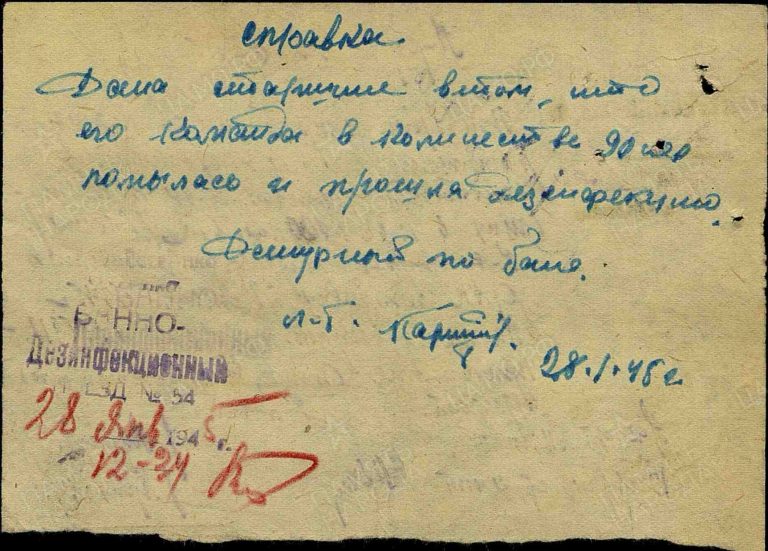 справка
Дана старшине в том, что
его команда в количестве 90 чел
помылась и прошла дезинфекцию.
Дежурный по бане.
л-т.
28.1.45 г.
БАННО-
Дезинфекционный
ПОЕЗД № 54
28 Янв 1945 г.